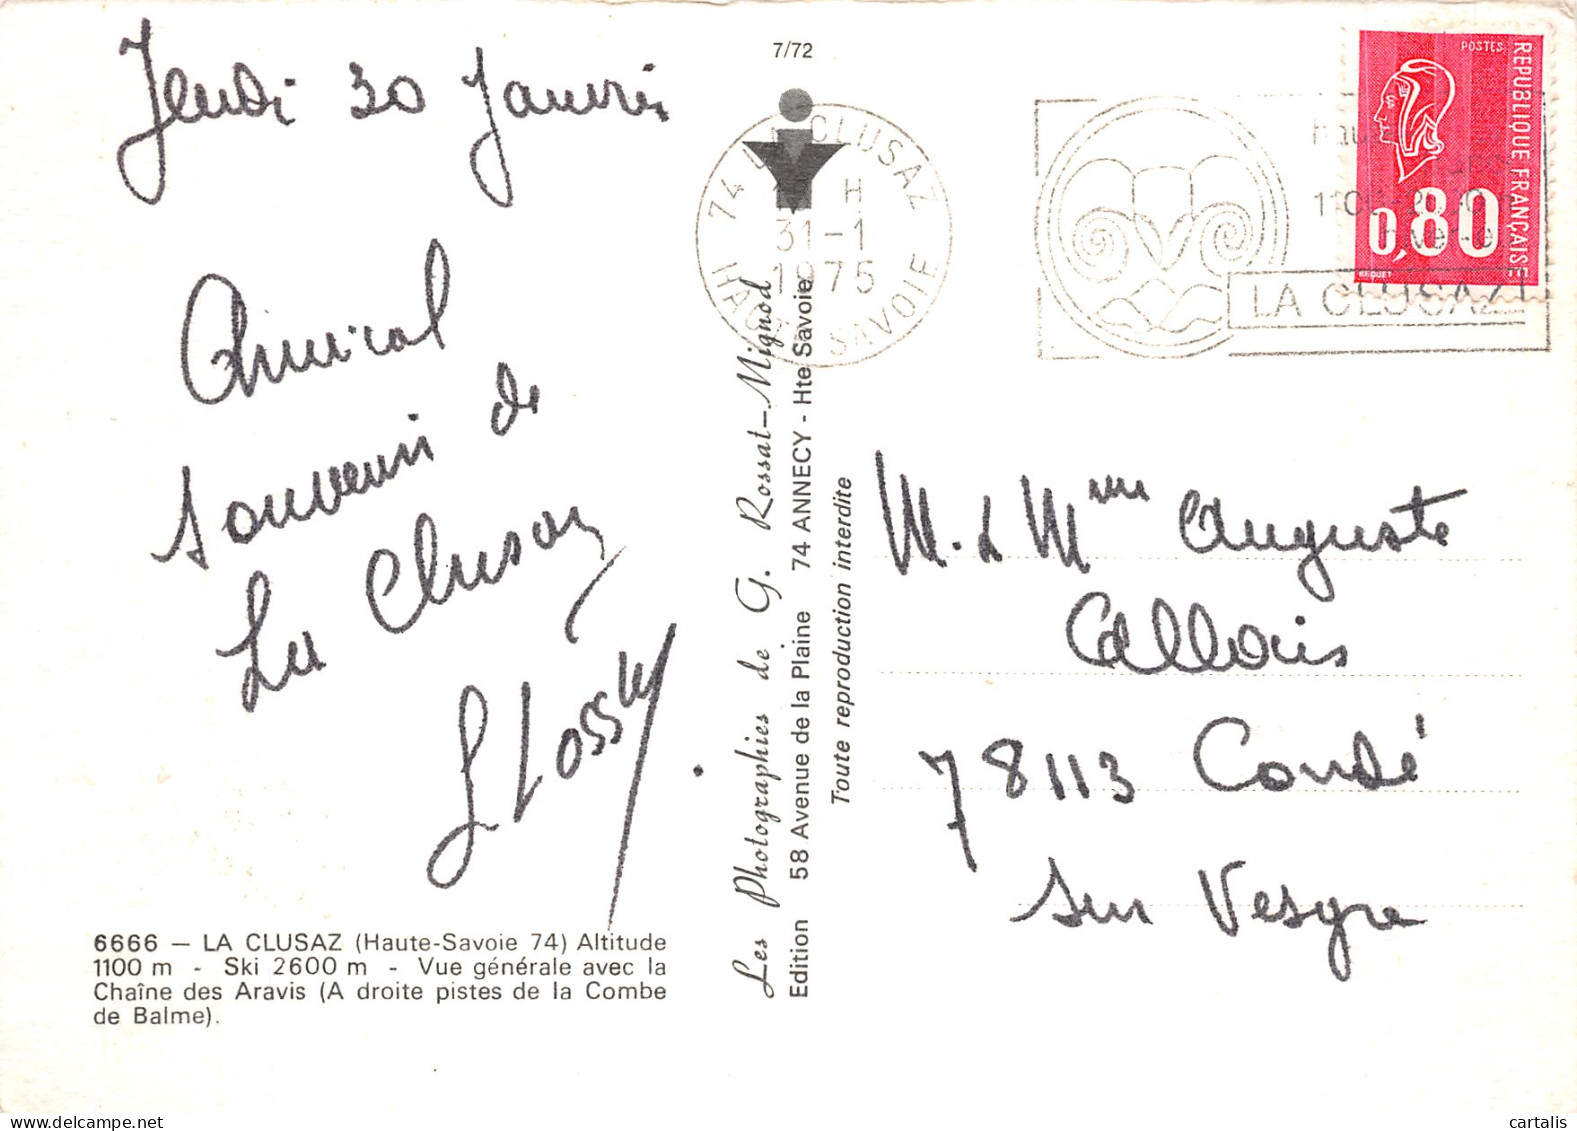 Jeudi 30 Janvier
Amical
souvenir de
La Clusaz
6666 — LA CLUSAZ (Haute-Savoie 74) Altitude
1100 m - Ski 2600 m - Vue générale avec la
Chaîne des Aravis (A droite pistes de la Combe
de Balme).
7/72
Les Photographies de G. Rossat-Mignod
Edition 58 Avenue de la Plaine 74 ANNECY - Hte Savoie
Toute reproduction interdite
74 LA CLUSAZ
H
31-1
1975
HAUTE SAVOIE
LA CLUSAZ
POSTES
REPUBLIQUE FRANÇAISE
0,80
BEQUET
M. & Mme Auguste
Callois
78113 Condé
sur Vesgre
cartalis